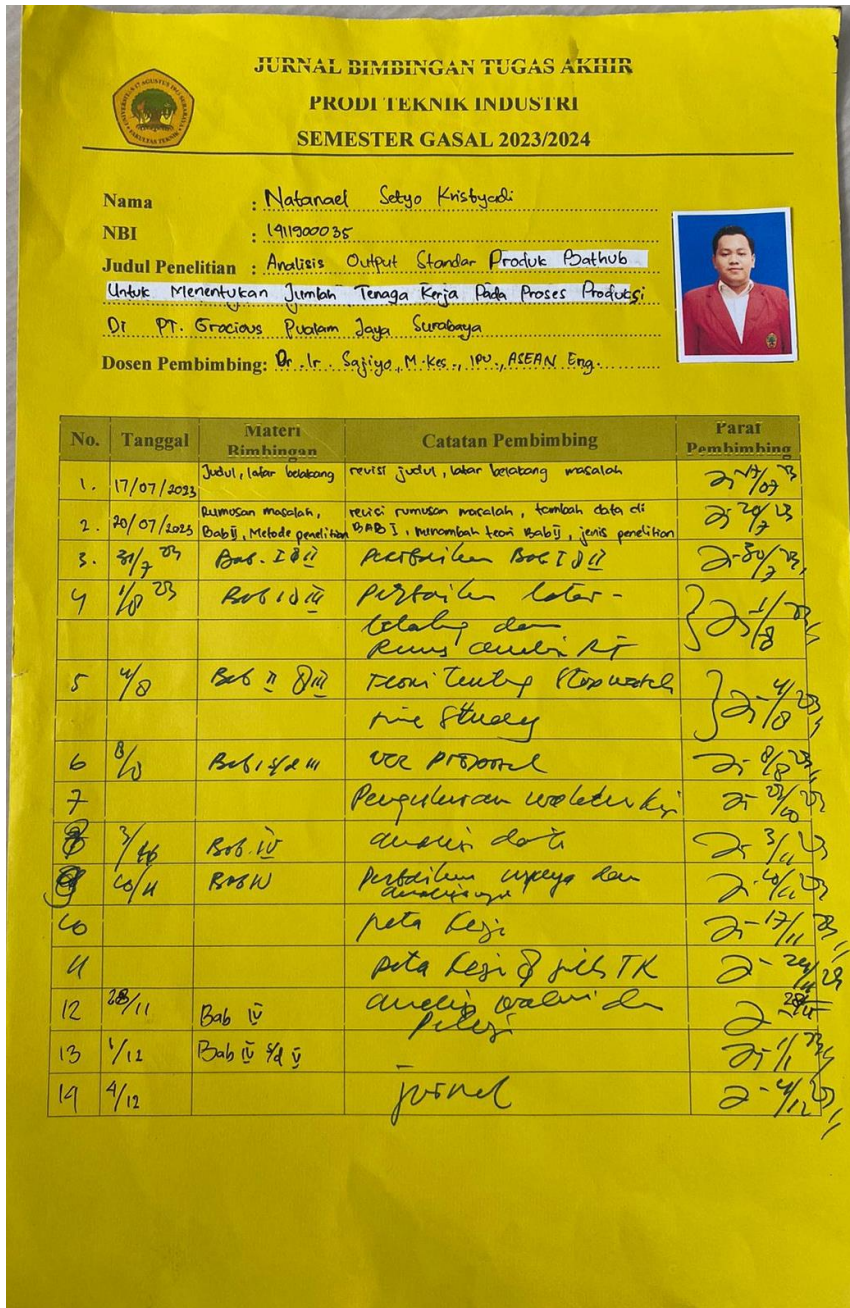 JURNAL BIMBINGAN TUGAS AKHIR
PRODI TEKNIK INDUSTRI
SEMESTER GASAL 2023/2024
Nama : Natanael Setyo Kristyadi
NBI : 1411900035
Judul Penelitian : Analisis Output Standar Produk Bathub
Untuk Menentukan Jumlah Tenaga Kerja Pada Proses Produksi
Di PT. Gracious Pualam Jaya Surabaya
Dosen Pembimbing: Dr. Ir. Sajiyo, M.Kes., IPU., ASEAN Eng.
No. Tanggal Materi Bimbingan Catatan Pembimbing Paraf Pembimbing
1. 17/07/2023 Judul, latar belakang revisi judul, latar belakang masalah 17/07 23
2. 20/07/2023 Rumusan masalah, revisi rumusan masalah, tambah data di 20/7 23
Bab II, Metode penelitian BAB I, menambah teori Bab II, jenis penelitian
3. 31/7 23 Bab. I & II Perbaikan Bab I & II 30/7 23
4 1/8 23 Bab I & III Perbaikan latar- 1/8 23
belakang dan
5 4/8 Bab II & III Teori tentang Stopwatch 4/8 23
time Study
6 8/8 Bab I s/d III acc proposal 8/8 23
7 Pengukuran waktu
8 Bab. IV analisis data 3/11 23
9 10/11 Bab IV Perbaikan dan 10/11 23
10 peta kerja 17/11 23
11 peta kerja & TK 24/11 23
12 28/11 Bab IV analisis 28/11
13 1/12 Bab IV s/d V
14 4/12 jurnal 4/12 23